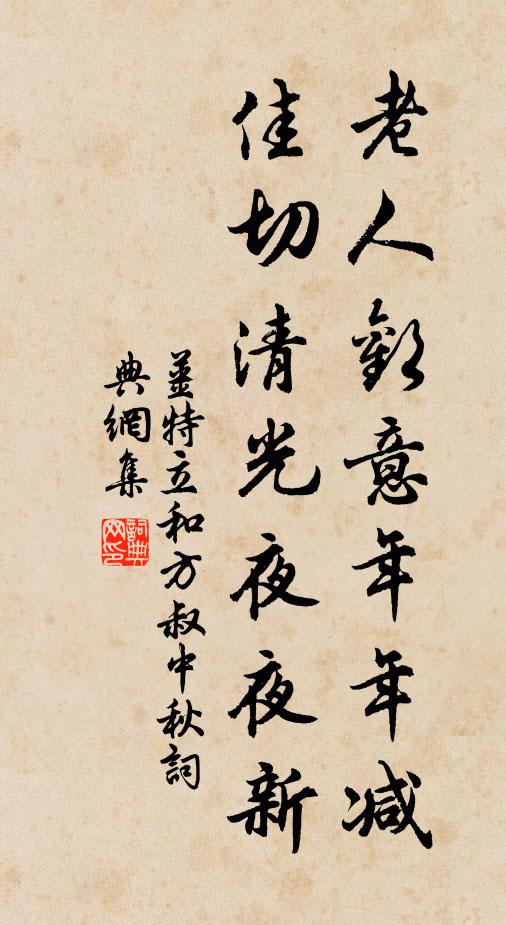 老人歡意年年减
佳切清光夜夜新
姜特立和方叔中秋詞
典網集
詞典網印